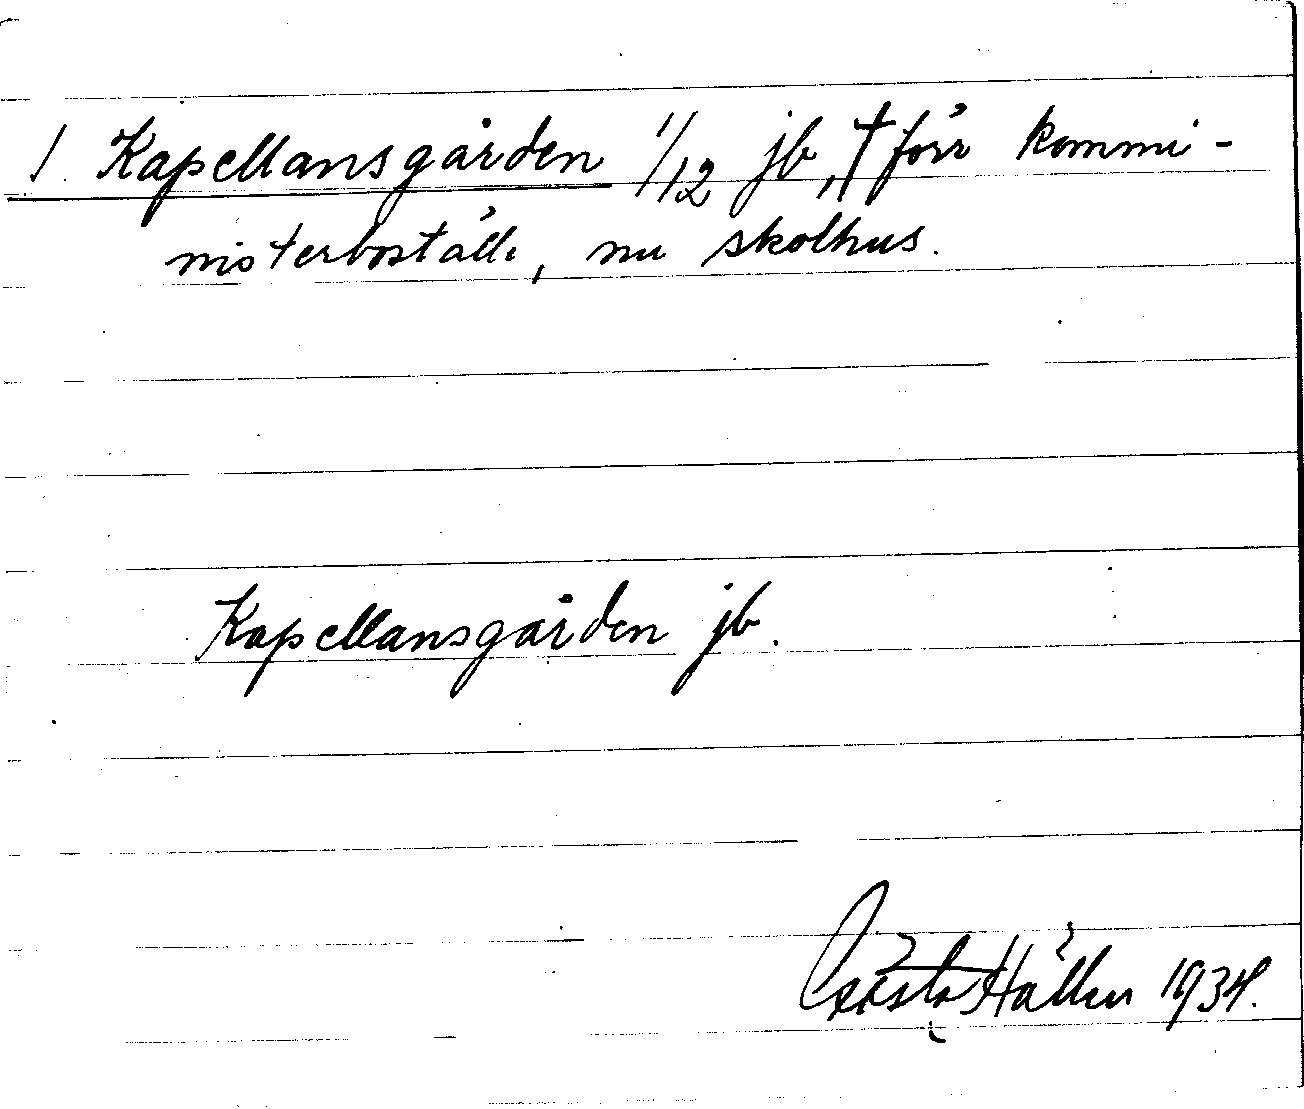 1. Kapellansgården 1/12 jb, † förr kommi-
nisterboställe, nu skolhus.
Kapellansgården jb.
Gösta Hällen 1934.